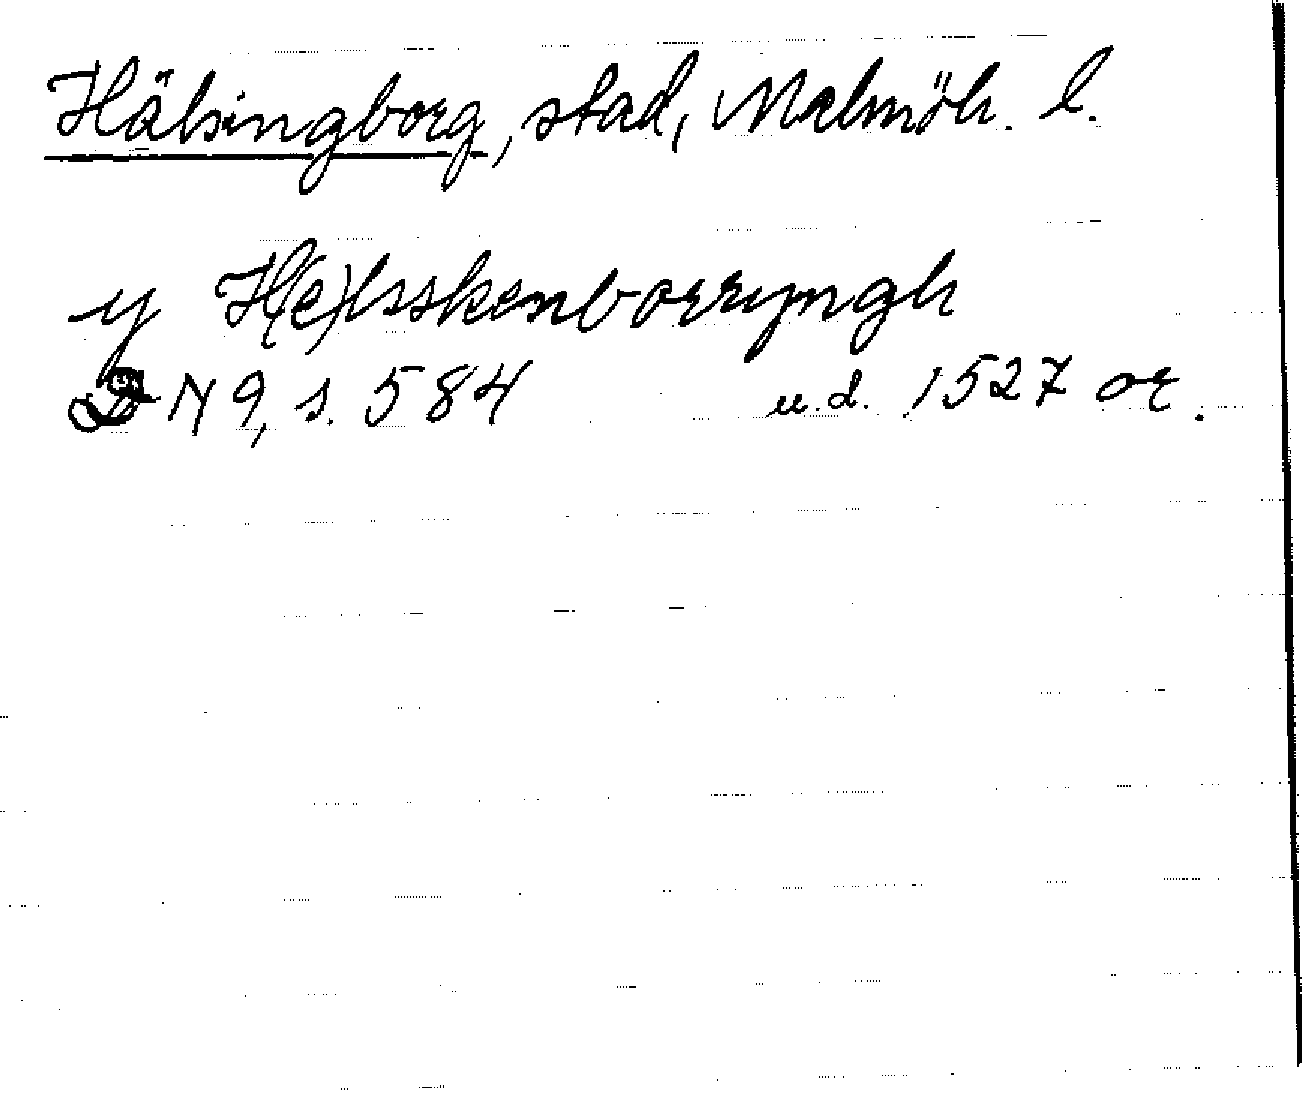 Hälsingborg, stad, Malmöh. l.
y H(e)lsskenborryngh
DN 9, s. 584 u.d. 1527 or.